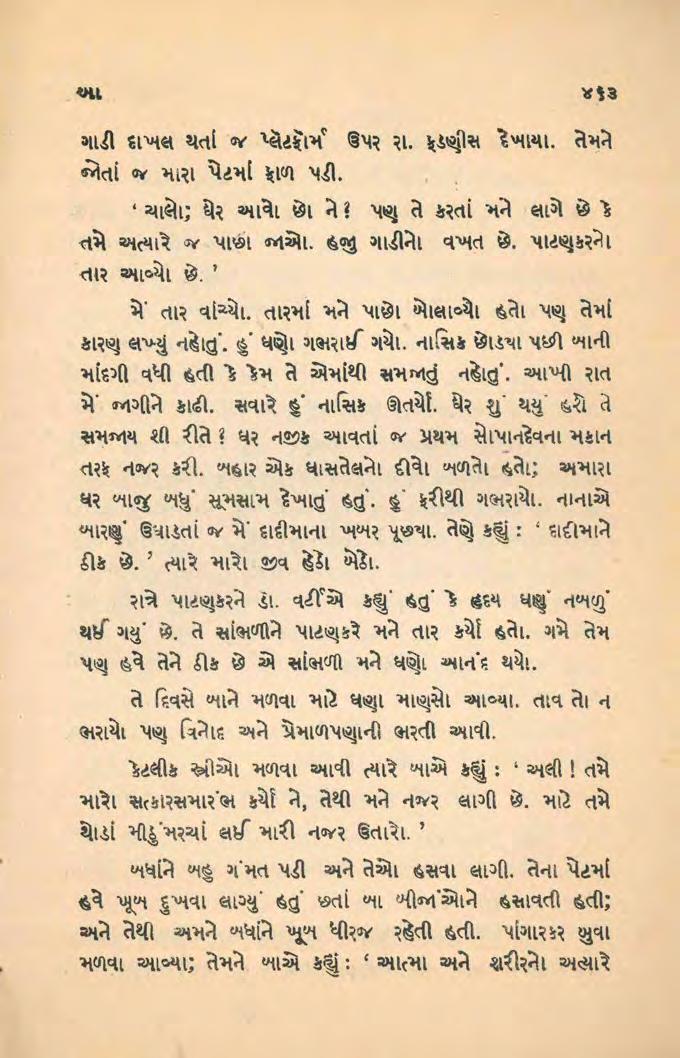 બા
૪૬૩
ગાડી દાખલ થતાં જ પ્લેટફૉર્મ ઉપર રા. ફડણીસ દેખાયા. તેમને
જોતાં જ મારા પેટમાં ફાળ પડી.
‘ ચાલો; ઘેર આવો છો ને? પણ તે કરતાં મને લાગે છે કે
તમે અત્યારે જ પાછા જાઓ. હજી ગાડીનો વખત છે. પાટણકરનો
તાર આવ્યો છે. ’
મેં તાર વાંચ્યો. તારમાં મને પાછો બોલાવ્યો હતો પણ તેમાં
કારણ લખ્યું નહોતું. હું ઘણો ગભરાઈ ગયો. નાસિક છોડયા પછી બાની
માંદગી વધી હતી કે કેમ તે એમાંથી સમજાતું નહોતું. આખી રાત
મેં જાગીને કાઢી. સવારે હું નાસિક ઊતર્યો. ઘેર શું થયું હશે તે
સમજાય શી રીતે? ઘર નજીક આવતાં જ પ્રથમ સોપાનદેવના મકાન
તરફ નજર કરી. બહાર એક ઘાસતેલનો દીવો બળતો હતો; અમારા
ઘર બાજુ બધું સૂમસામ દેખાતું હતું. હું ફરીથી ગભરાયો. નાનાએ
બારણું ઉઘાડતાં જ મેં દાદીમાના ખબર પૂછયા. તેણે કહ્યું : ‘ દાદીમાને
ઠીક છે. ’ ત્યારે મારો જીવ હેઠો બેઠો.
રાત્રે પાટણકરને ડૉ. વર્ટીએ કહ્યું હતું કે હૃદય ઘણું નબળું
થઈ ગયું છે. તે સાંભળીને પાટણકરે મને તાર કર્યો હતો. ગમે તેમ
પણ હવે તેને ઠીક છે એ સાંભળી મને ઘણો આનંદ થયો.
તે દિવસે બાને મળવા માટે ઘણા માણસો આવ્યા. તાવ તો ન
ભરાયો પણ વિનોદ અને પ્રેમાળપણાની ભરતી આવી.
કેટલીક સ્ત્રીઓ મળવા આવી ત્યારે બાએ કહ્યું : ‘ અલી ! તમે
મારો સત્કારસમારંભ કર્યો ને, તેથી મને નજર લાગી છે. માટે તમે
થોડાં મીઠુંમરચાં લઈ મારી નજર ઉતારો. ’
બધાંને બહુ ગંમત પડી અને તેઓ હસવા લાગી. તેના પેટમાં
હવે ખૂબ દુખવા લાગ્યું હતું છતાં બા બીજાંઓને હસાવતી હતી;
અને તેથી અમને બધાંને ખૂબ ધીરજ રહેતી હતી. પાંગારકર બુવા
મળવા આવ્યા; તેમને બાએ કહ્યું : ‘ આત્મા અને શરીરનો અત્યારે